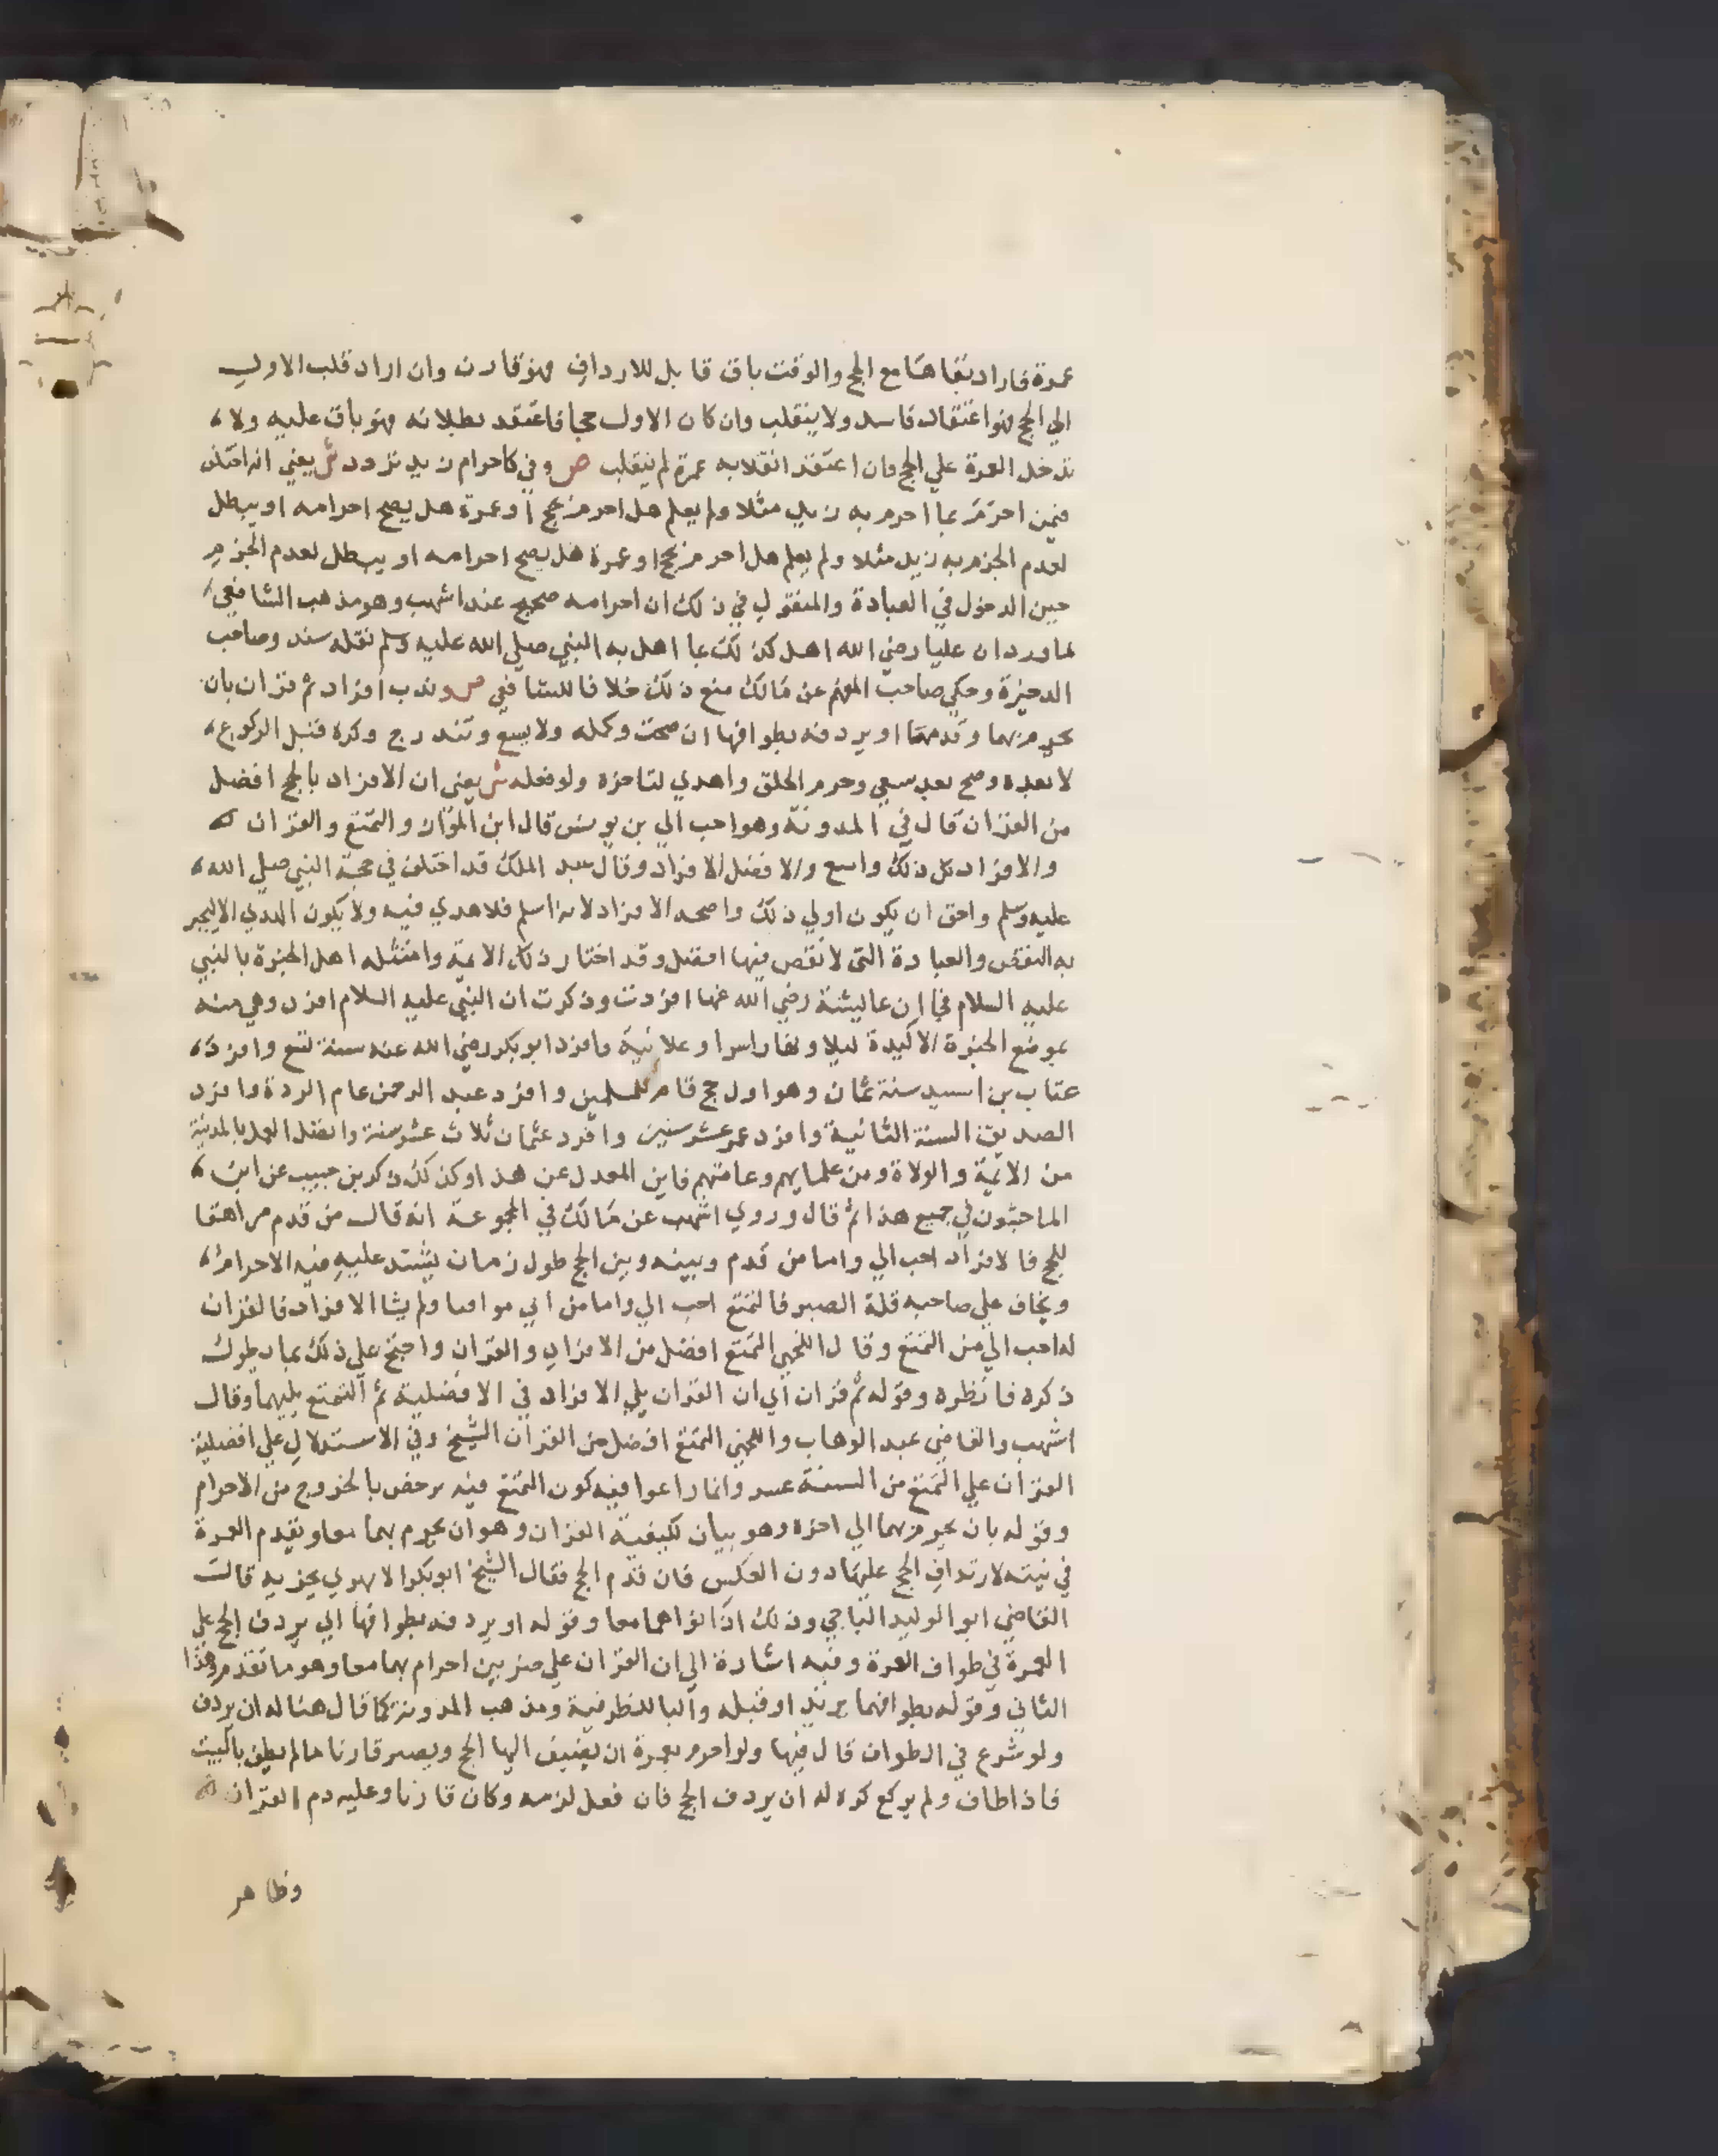 عمرة فاراد بقاها مع الحج والوقت باق قابل للارداف فهو قارن وان اراد قلب الاول
الي الحج فهو اعتقاد فاسد ولا ينقلب وان كان الاول حجا فاعتقد بطلانه فهو باق عليه ولا
تدخل العمرة علي الحج فان اعتقد انقلابه عمرة لم ينقلب ص وفي كاحرام زيد تردد ش يعني انه اختلف
فيمن احرم بما احرم به زيد مثلا ولم يعلم هل احرم بحج او عمرة هل يصح احرامه او يبطل
لعدم الجزم به زيد مثلا ولم يعلم هل احرم بحج او عمرة هل يصح احرامه او يبطل لعدم الجزم
حين الدخول في العبادة والمنقول في ذلك ان احرامه صحيح عند اشهب وهو مذهب الشافعي
لما ورد ان عليا رضي الله اهل كذلك بما اهل به النبي صلي الله عليه وسلم نقله سند وصاحب
الدخيرة وحكي صاحب المفهم عن مالك منع ذلك خلافا للشافعي ص وندب افراد ثم قران بان
يحرم بهما وقدمها او يردفه بطوافها ان صحت وكمله ولا يسع وتندرج وكره قبل الركوع
لا بعده وصح بعد سعي وحرم الحلق واهدي لتاخره ولو فعله ش يعني ان الافراد بالحج افضل
من القران قال في المدونة وهو احب الي بن يونس قال ابن المواز والتمتع والقران
والافراد كل ذلك واسع والافضل الافراد وقال عبد الملك قد اختلف في حجة النبي صلي الله
عليه وسلم واحق ان يكون اولي ذلك واصحه الافراد لانه اسلم فلا هدي فيه ولا يكون الهدي الا ليجبر
به النقص والعبادة التي لا نقص فيها افضل وقد اختار ذلك الايمة وامتثله اهل الخبرة بالنبي
عليه السلام فجا ان عايشة رضي الله عنها افردت وذكرت ان النبي عليه السلام افرد وهي منه
بموضع الخبرة الاكيدة ليلا ونهارا سرا وعلانية وافرد ابو بكر رضي الله عنه سنة تسع وافرد
عتاب بن اسيد سنة ثمان وهو اول حج قام للمسلمين وافرد عبد الرحمن عام الردة وافرد
الصديق السنة الثانية وافرد عمر عشر سنين وافرد عثمان ثلاث عشر سنة واتصل العمل بالمدينة
من الايمة والولاة ومن علمايهم وعامتهم فاين المعدل عن هذا وكذلك ذكر بن حبيب عن ابن
الماجشون في جميع هذا ثم قال وروي اشهب عن مالك في المجموعة انه قال من قدم مراهقا
للحج فالافراد احب الي واما من قدم وبينه وبين الحج طول زمان يشتد عليه فيه الاحرام
ويخاف علي صاحبه قلة الصبر فالتمتع احب الي واما من اتي موافيا ولم يشا الافراد فالقران
له احب الي من التمتع وقال اللخمي التمتع افضل من الافراد والقران واحتج علي ذلك بما يطول
ذكره فانظره وقوله ثم قران اي ان القران يلي الافراد في الافضلية ثم التمتع يليهما وقال
اشهب والقاضي عبد الوهاب واللخمي التمتع افضل من القران الشيخ وفي الاستدلال علي افضلية
القران علي التمتع من السنة عسر وانما راعوا فيه كون التمتع فيه ترخص بالخروج من الاحرام
وقوله بان يحرم بهما الي اخره وهو بيان لكيفية القران وهو ان يحرم بهما معا ويقدم العمرة
في نيته لارتداف الحج عليها دون العكس فان قدم الحج فقال الشيخ ابو بكر الابهري يجزيه قال
القاضي ابو الوليد الباجي وذلك اذا نواهما معا وقوله او يردفه بطوافها اي يردف الحج علي
العمرة في طواف العمرة وفيه اشارة الي ان القران علي ضربين احرام بهما معا وهو ما تقدم وهذا
الثاني وقوله بطوافها يريد او قبله والبا للظرفية ومذهب المدونة كما قال هنا له ان يردف
ولو شرع في الطواف قال فيها ولو احرم بعمرة ان يضيف اليها الحج ويصير قارنا ما لم يطف بالبيت
فاذا طاف ولم يركع كره له ان يردف الحج فان فعل لزمه وكان قارنا وعليه دم القران
وظاهر